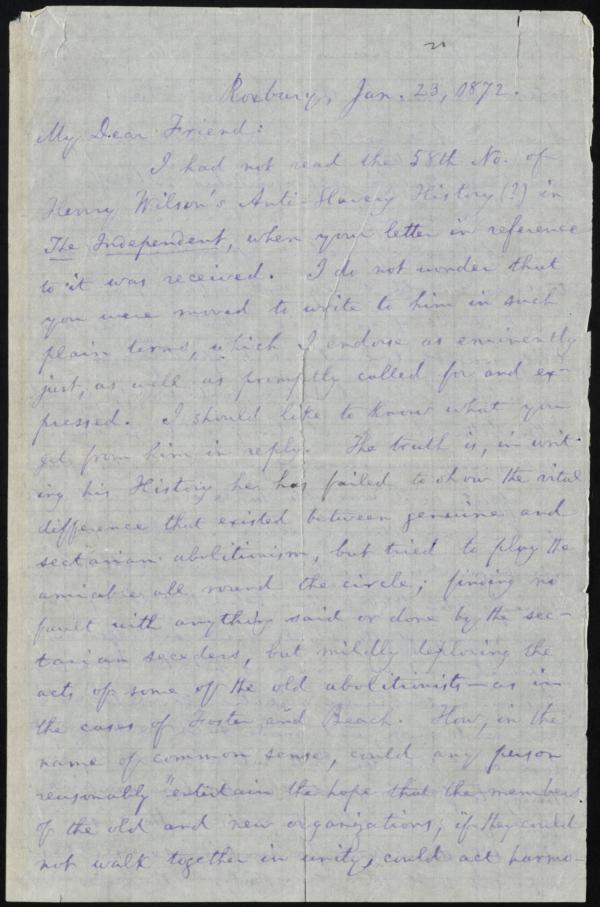 Roxbury, Jan. 23, 1872.
My Dear Friend:
I had not read the 58th No. of
Henry Wilson's Anti-Slavery History (?) in
The Independent, when your letter in reference
to it was received. I do not wonder that
you were moved to write to him in such
plain terms, which I endorse as eminently
just, as well as promptly called for and ex-
pressed. I should like to know what you
get from him in reply. The truth is, in writ-
ing his History, he has failed to show the vital
difference that existed between genuine and
sectarian abolitionism, but tried to play the
amiable all round the circle; finding no
fault with anything said or done by the sec-
tarian seceders, but mildly deploring the
acts of some of the old abolitionists—as in
the cases of Foster and Beach. How, in the
name of common sense, could any person
reasonably "entertain the hope that the members
of the old and new organizations, if they could
not walk together in unity, could act harmo-